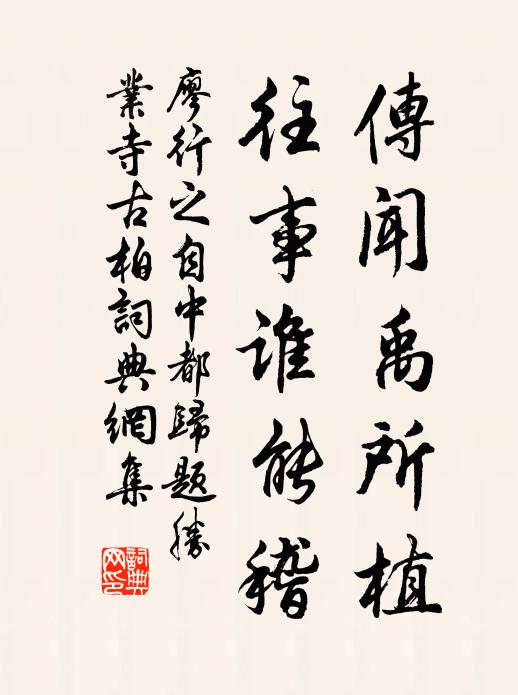 傳聞禹所植
往事誰能稽
廖行之自中都歸題勝
業寺古柏詞典網集
詞典网印